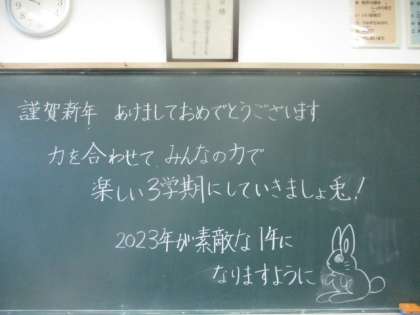 謹賀新年 あけましておめでとうございます
力を合わせて、みんなの力で
楽しい3学期にしていきましょ兎!
2023年が素敵な1年に
なりますように